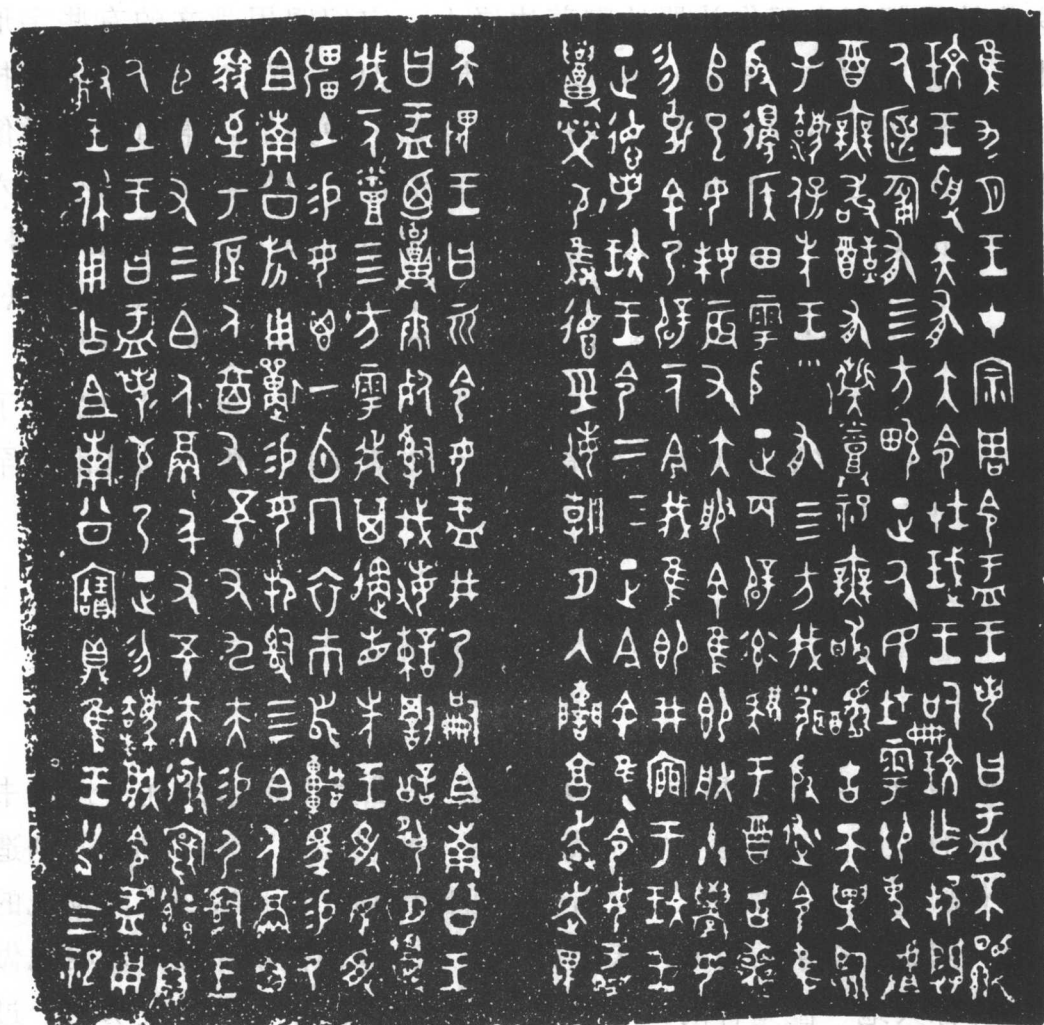 隹九月王才宗周令盂王若曰盂不顯
玟王受天有大令在珷王嗣玟乍邦闢
氒匿匍有四方畯正氒民在雩御事䖒
酉無敢酖有祡烝祀無敢擾古天異臨
子灋保先王有四方我聞殷述令隹
殷邊侯田雩殷正百辟率肄于酉古喪
𠂤已女妹辰又大服余隹即朕小學女
勿剋余乃辟一人今我隹即井禀于玟王
正德若玟王令二三正今余隹令女盂
召榮敬雝德巠敏朝夕入讕享奔走畏
天畏王曰而令女盂井乃嗣且南公王
曰盂迺召夾死𤔲戎敏諫罰訟夙夕召
我一人烝四方雩我其遹省先王受民受
疆土易女鬯一卣冂衣巿舄車馬易乃
且南公旂用狩易女邦𤔲四白人鬲自
馭至于庶人六百又五十又九夫易尸𤔲
王臣十又三白人鬲千又五十夫自
氒土王曰盂若敬乃正勿灋朕令盂用
對王休用乍且南公寶鼎隹王廿又三祀